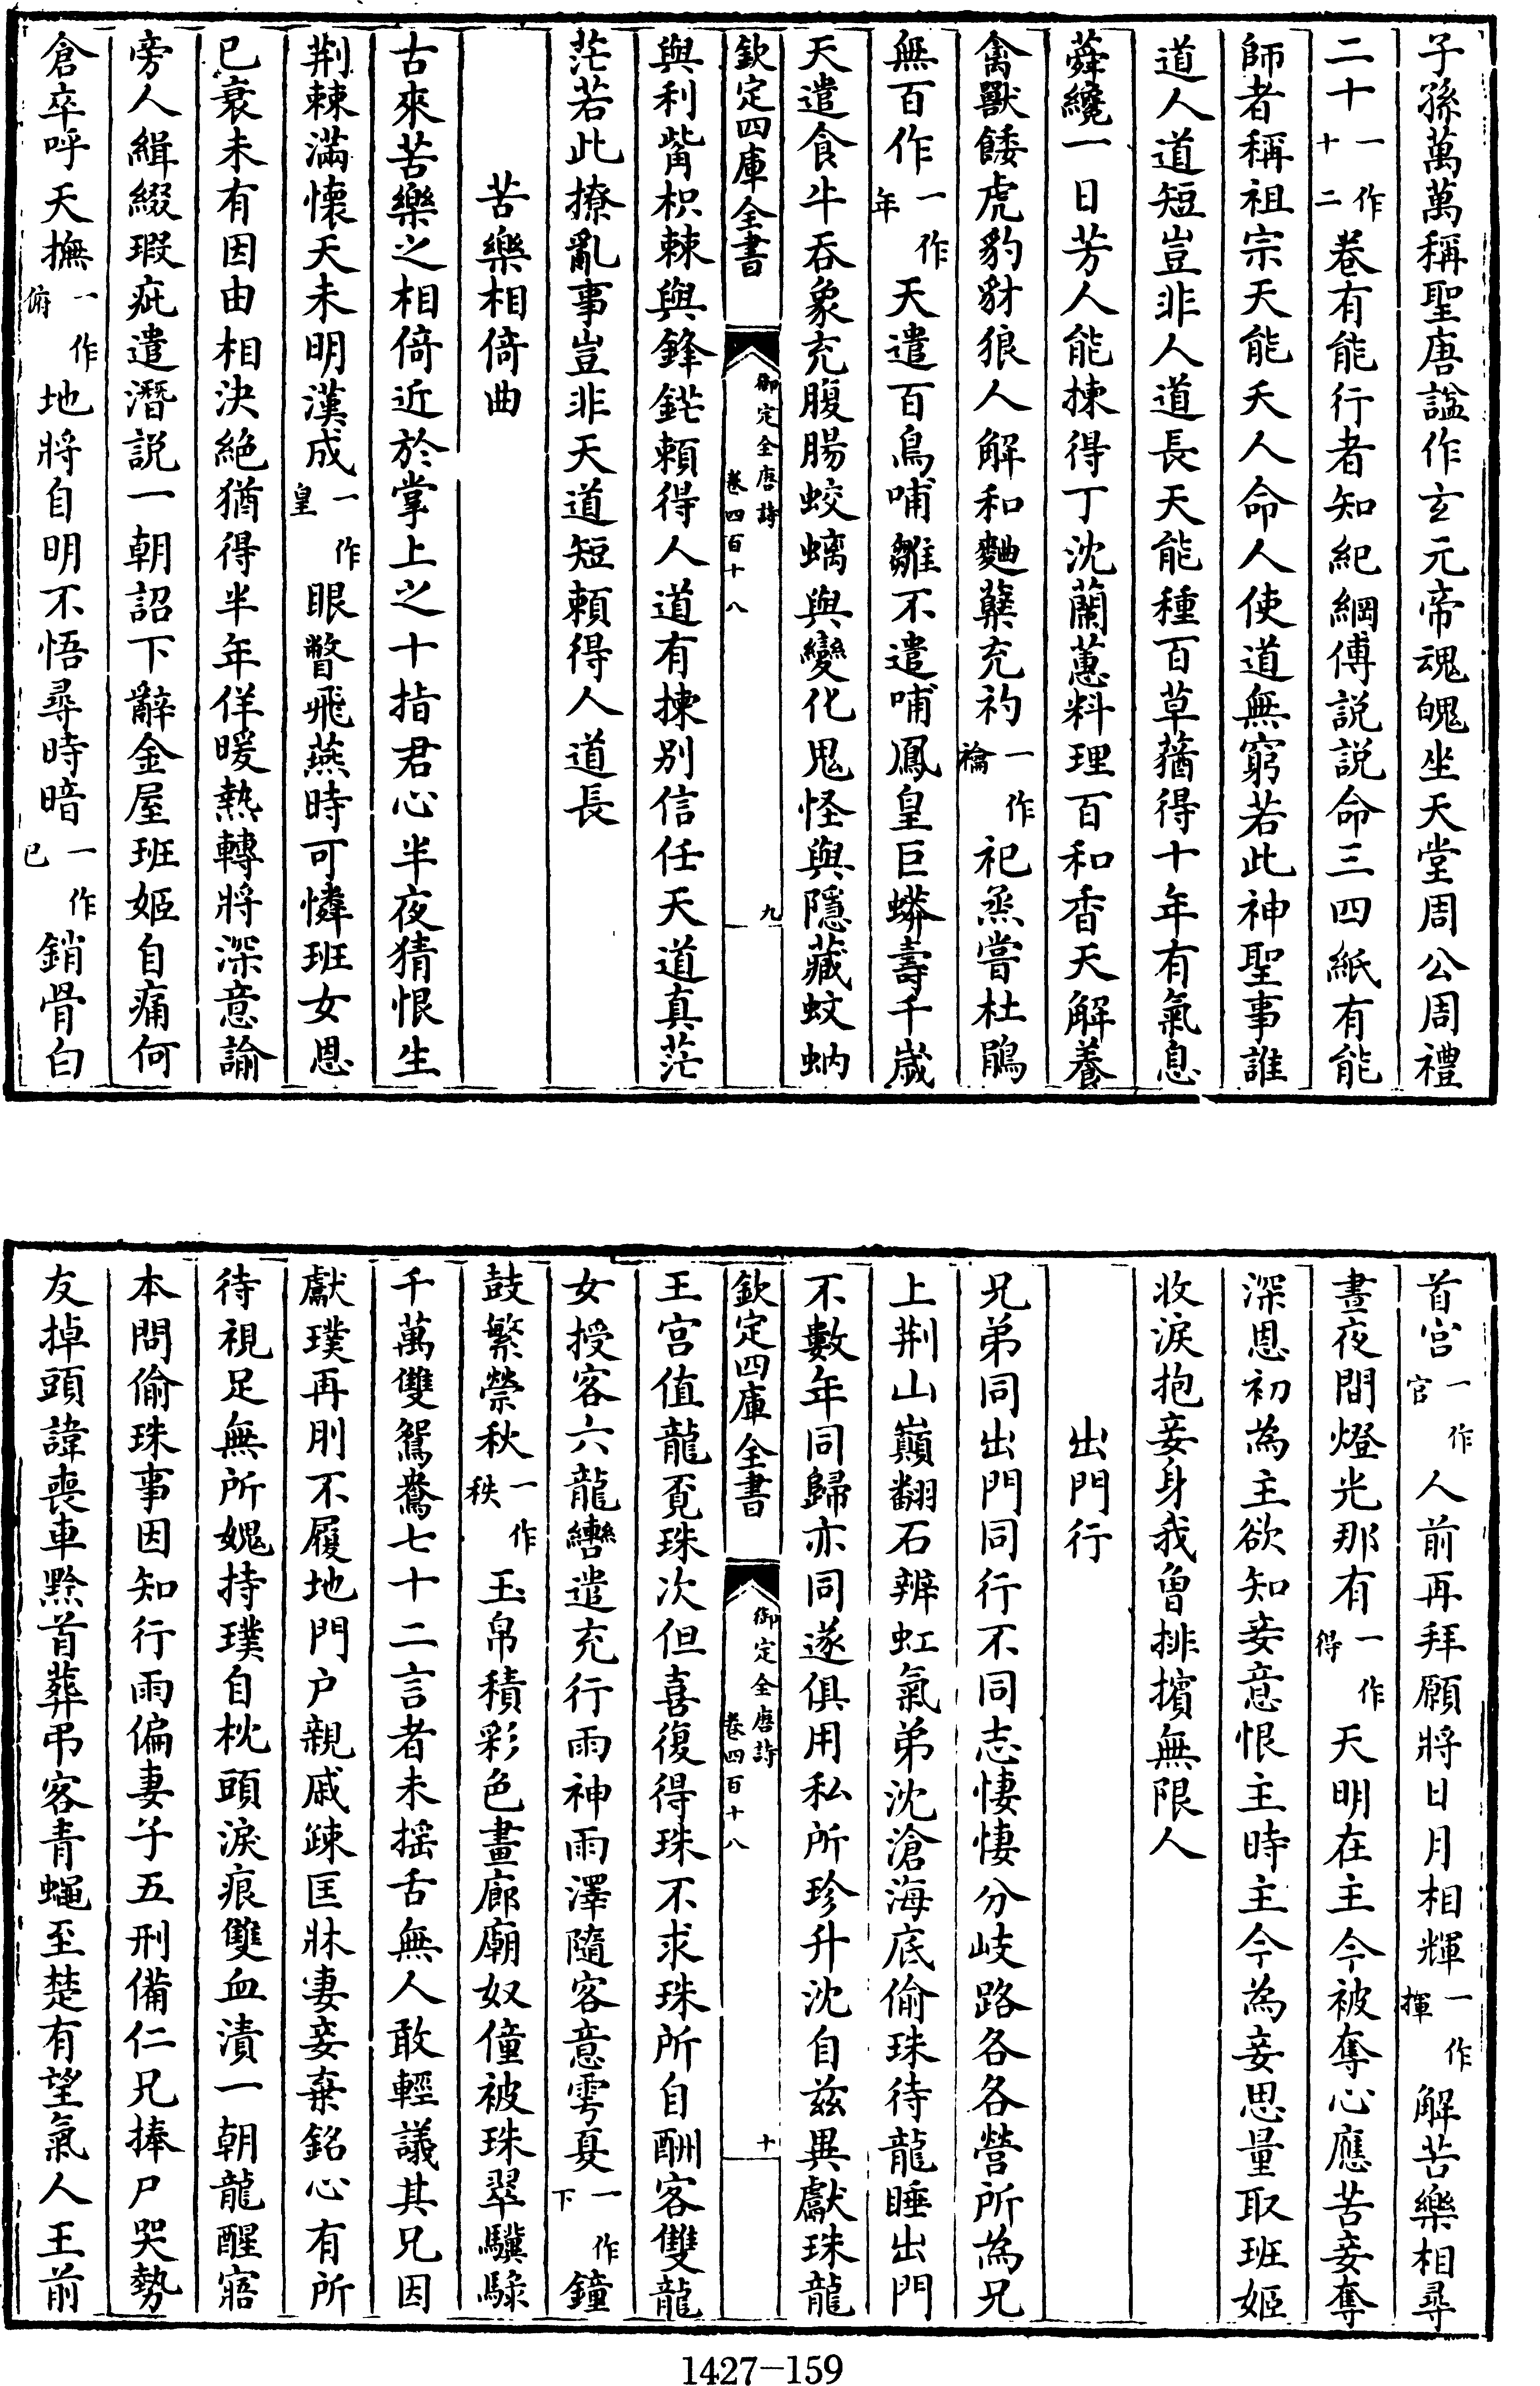 子孫萬萬稱聖唐諡作玄元帝魂魄坐天堂周公周禮
二十一作十二卷有能行者知紀綱傅説説命三四紙有能
師者稱祖宗天能夭人命人使道無窮若此神聖事誰
道人道短豈非人道長天能種百草蕕得十年有氣息
蕣纔一日芳人能揀得丁沈蘭蕙料理百和香天解養
禽獸餧虎豹豺狼人解和麴糵充礿一作禴祀烝嘗杜鵑
無百作一作年天遣百鳥哺雛不遣哺鳳皇巨蟒壽千歲
天遣食牛吞象充腹腸蛟螭與變化鬼怪與隱藏蚊蚋
欽定四庫全書 御定全唐詩 卷四百十八 九
與利觜枳棘與鋒鋩賴得人道有揀别信任天道真茫
茫若此撩亂事豈非天道短賴得人道長
苦樂相倚曲
古來苦樂之相倚近於掌上之十指君心半夜猜恨生
荆棘滿懷天未明漢成一作皇眼瞥飛燕時可憐班女恩
已衰未有因由相決絶猶得半年佯暖熱轉將深意諭
旁人緝綴瑕疵遣潛説一朝詔下辭金屋班姬自痛何
倉卒呼天撫一作俯地將自明不悟尋時暗一作已銷骨白
首宫一作官人前再拜願將日月相輝一作揮解苦樂相尋
晝夜間燈光那有一作得天明在主今被奪心應苦妾奪
深恩初為主欲知妾意恨主時主今為妾思量取班姬
收淚抱妾身我曾排擯無限人
出門行
兄弟同出門同行不同志悽悽分岐路各各營所為兄
上荆山巔翻石辨虹氣弟沈滄海底偷珠待龍睡出門
不數年同歸亦同遂俱用私所珍升沈自兹異獻珠龍
欽定四庫全書 御定全唐詩 卷四百十八 十
王宫值龍覔珠次但喜復得珠不求珠所自酬客雙龍
女授客六龍轡遣充行雨神雨澤隨客意雩夏一作下鐘
鼓繁禜秋一作秩玉帛積彩色畫廊廟奴僮被珠翠驥騄
千萬雙鴛鴦七十二言者未摇舌無人敢輕議其兄因
獻璞再刖不履地門户親戚疎匡牀妻妾棄銘心有所
待視足無所媿持璞自枕頭淚痕雙血漬一朝龍醒寤
本問偷珠事因知行雨偏妻子五刑備仁兄捧尸哭勢
友掉頭諱喪車黔首葬弔客青蠅至楚有望氣人王前
1427-159